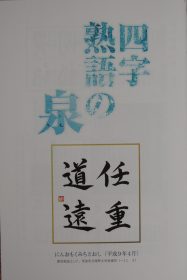 四字
熟語の
泉
任重
道遠
にんおもくみちとおし「平成9年4月」